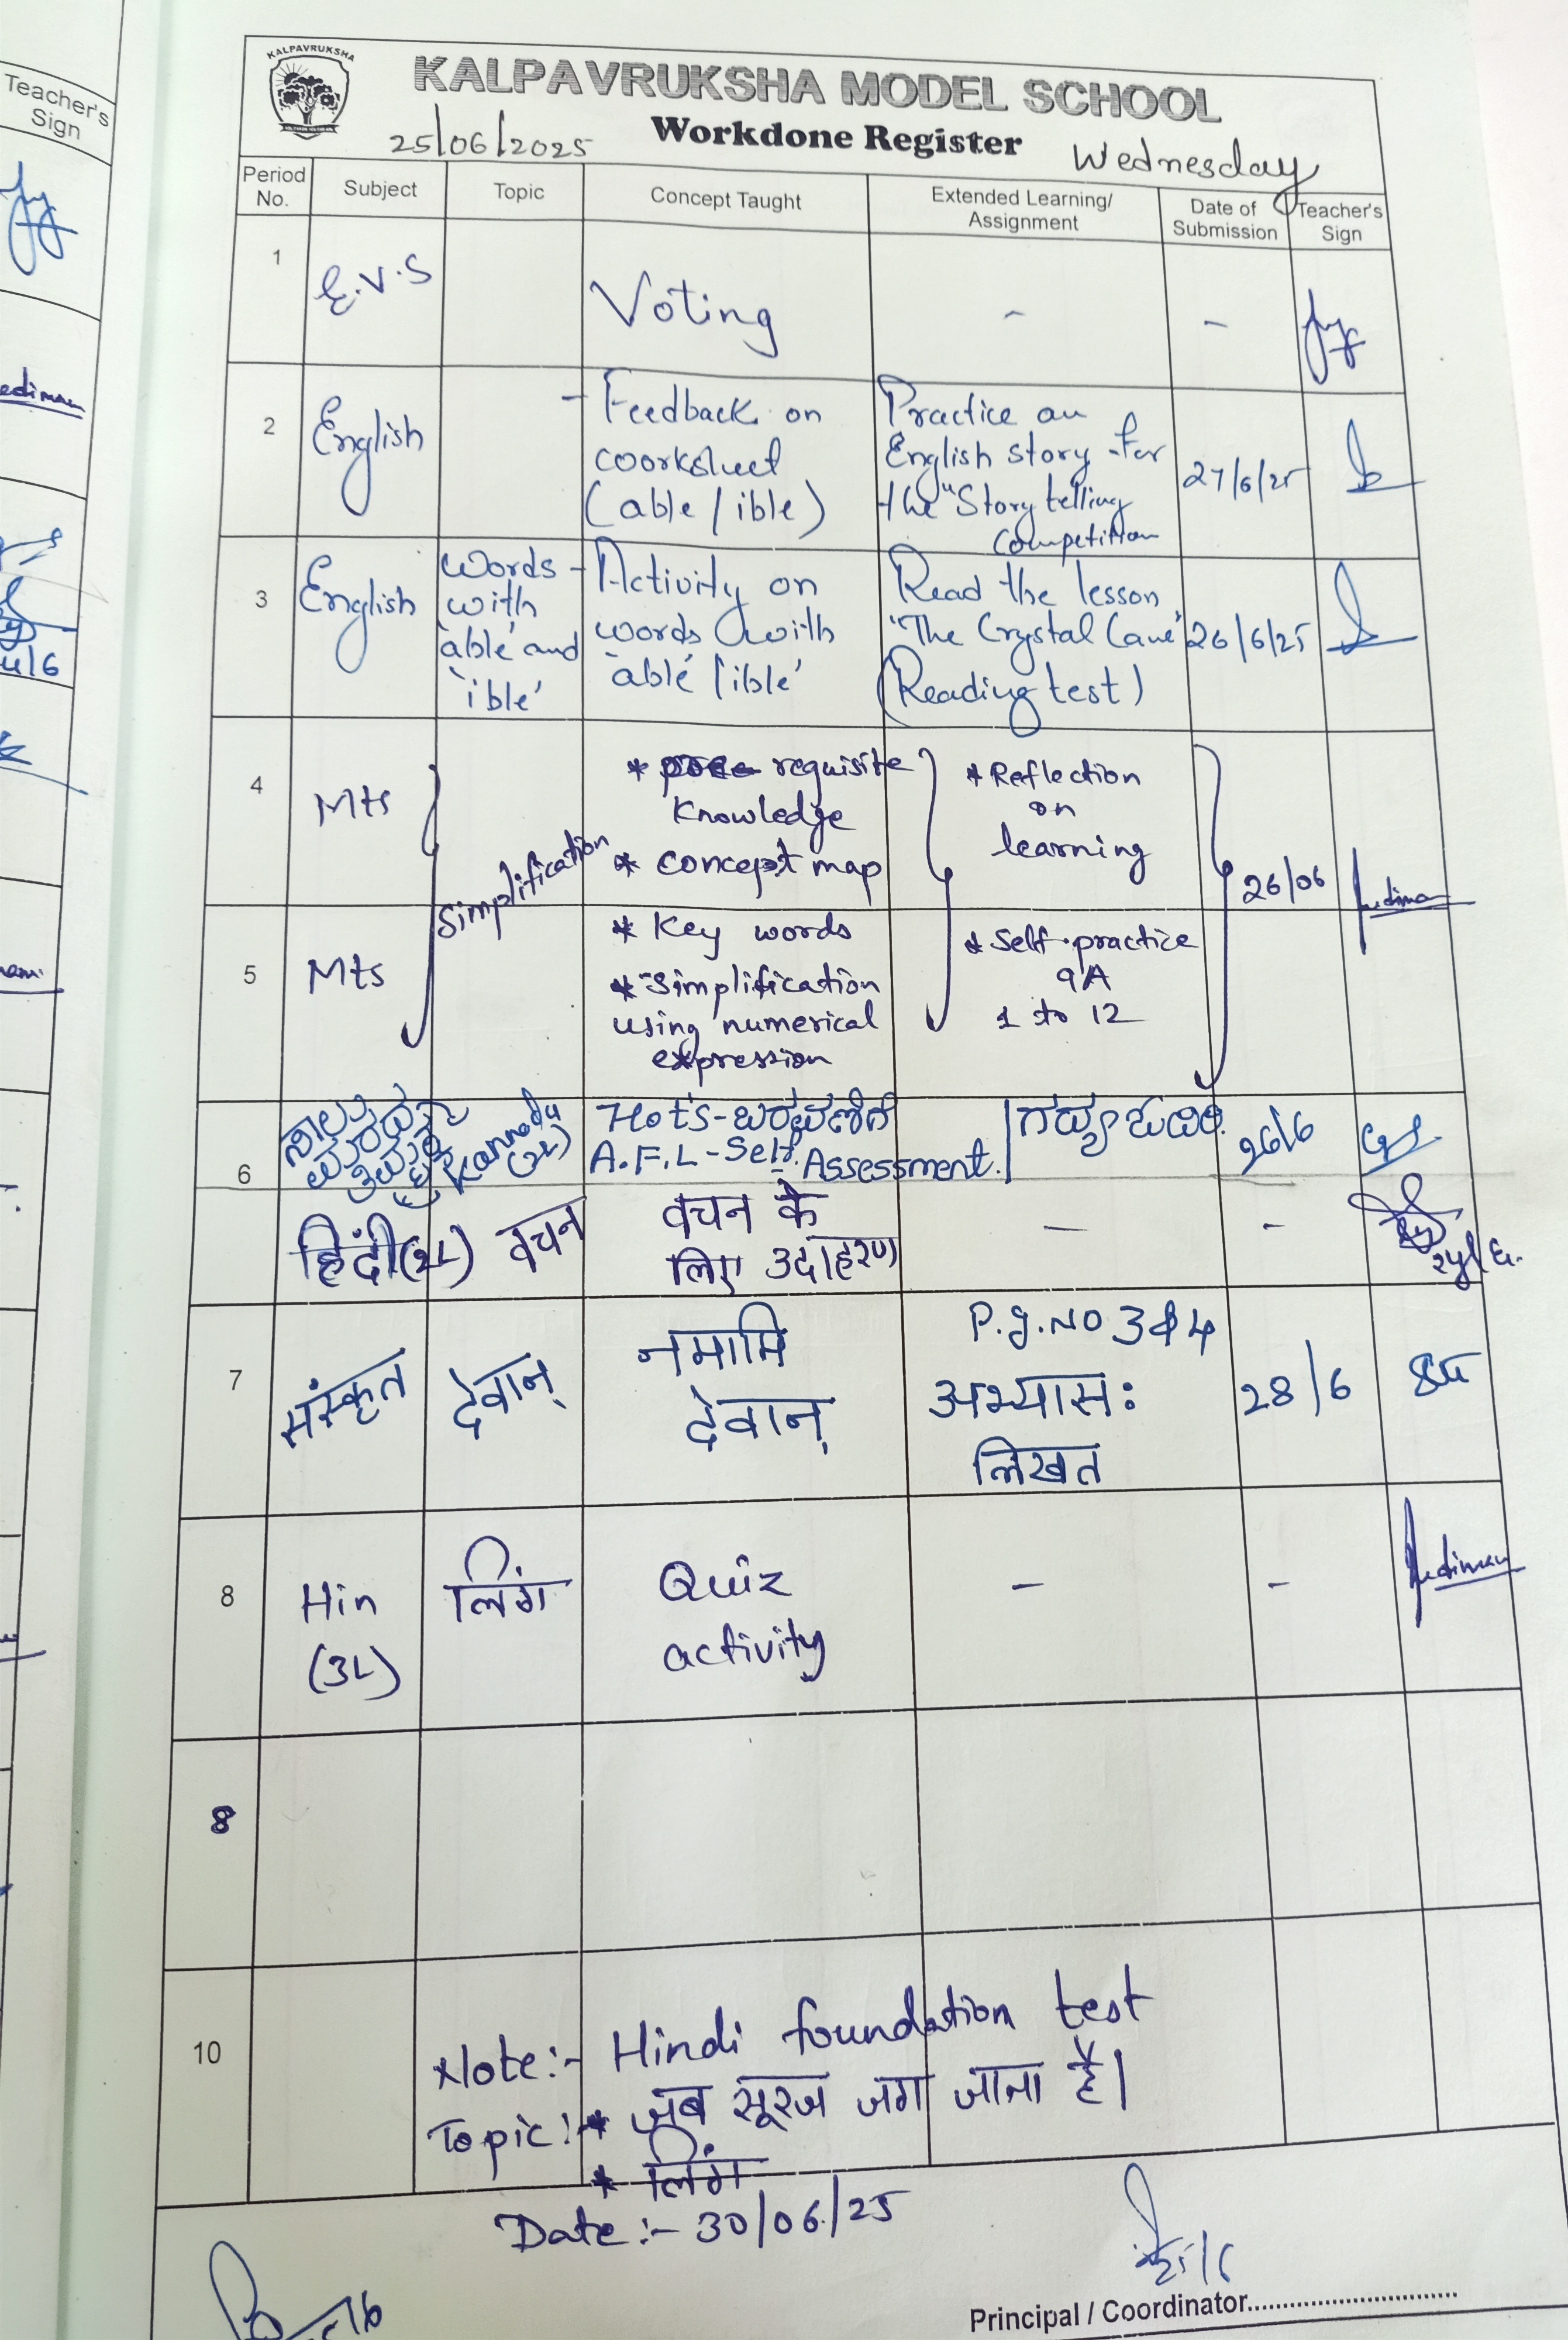 Teacher's
Sign
KALPAVRUKSHA
KALPAVRUKSHA MODEL SCHOOL
25/06/2025 Workdone Register Wednesday
Period No. Subject Topic Concept Taught Extended Learning/ Assignment Date of Submission Teacher's Sign
1 E.V.S Voting - -
2 English - Feedback on Practice an
worksheet English story for 27/6/25
(able / ible) the "Story telling
Competition
3 English Words - Activity on Read the lesson
with words with "The Crystal Cave" 26/6/25
'able' and 'able' / 'ible' (Reading test)
'ible'
4 Mts * pre requisite * Reflection
Knowledge on
Simplification * concept map learning 26/06
5 Mts * Key words * Self practice
* Simplification 9A
using numerical 1 to 12
expression
6 Kannada Hot's - ಬರವಣಿಗೆ 26/6
A.F.L - Self. Assessment.
हिंदी (2L) वचन वचन के - -
लिए उदाहरण
7 संस्कृत देवान् नमामि P.g.No 3 & 4
देवान् अभ्यासः 28/6
लिखत
8 Hin लिंग Quiz - -
(3L) activity
8
10 Note:- Hindi foundation test
Topic:- * जब सूरज जग जाता है।
* लिंग
Date :- 30/06/25
Principal / Coordinator